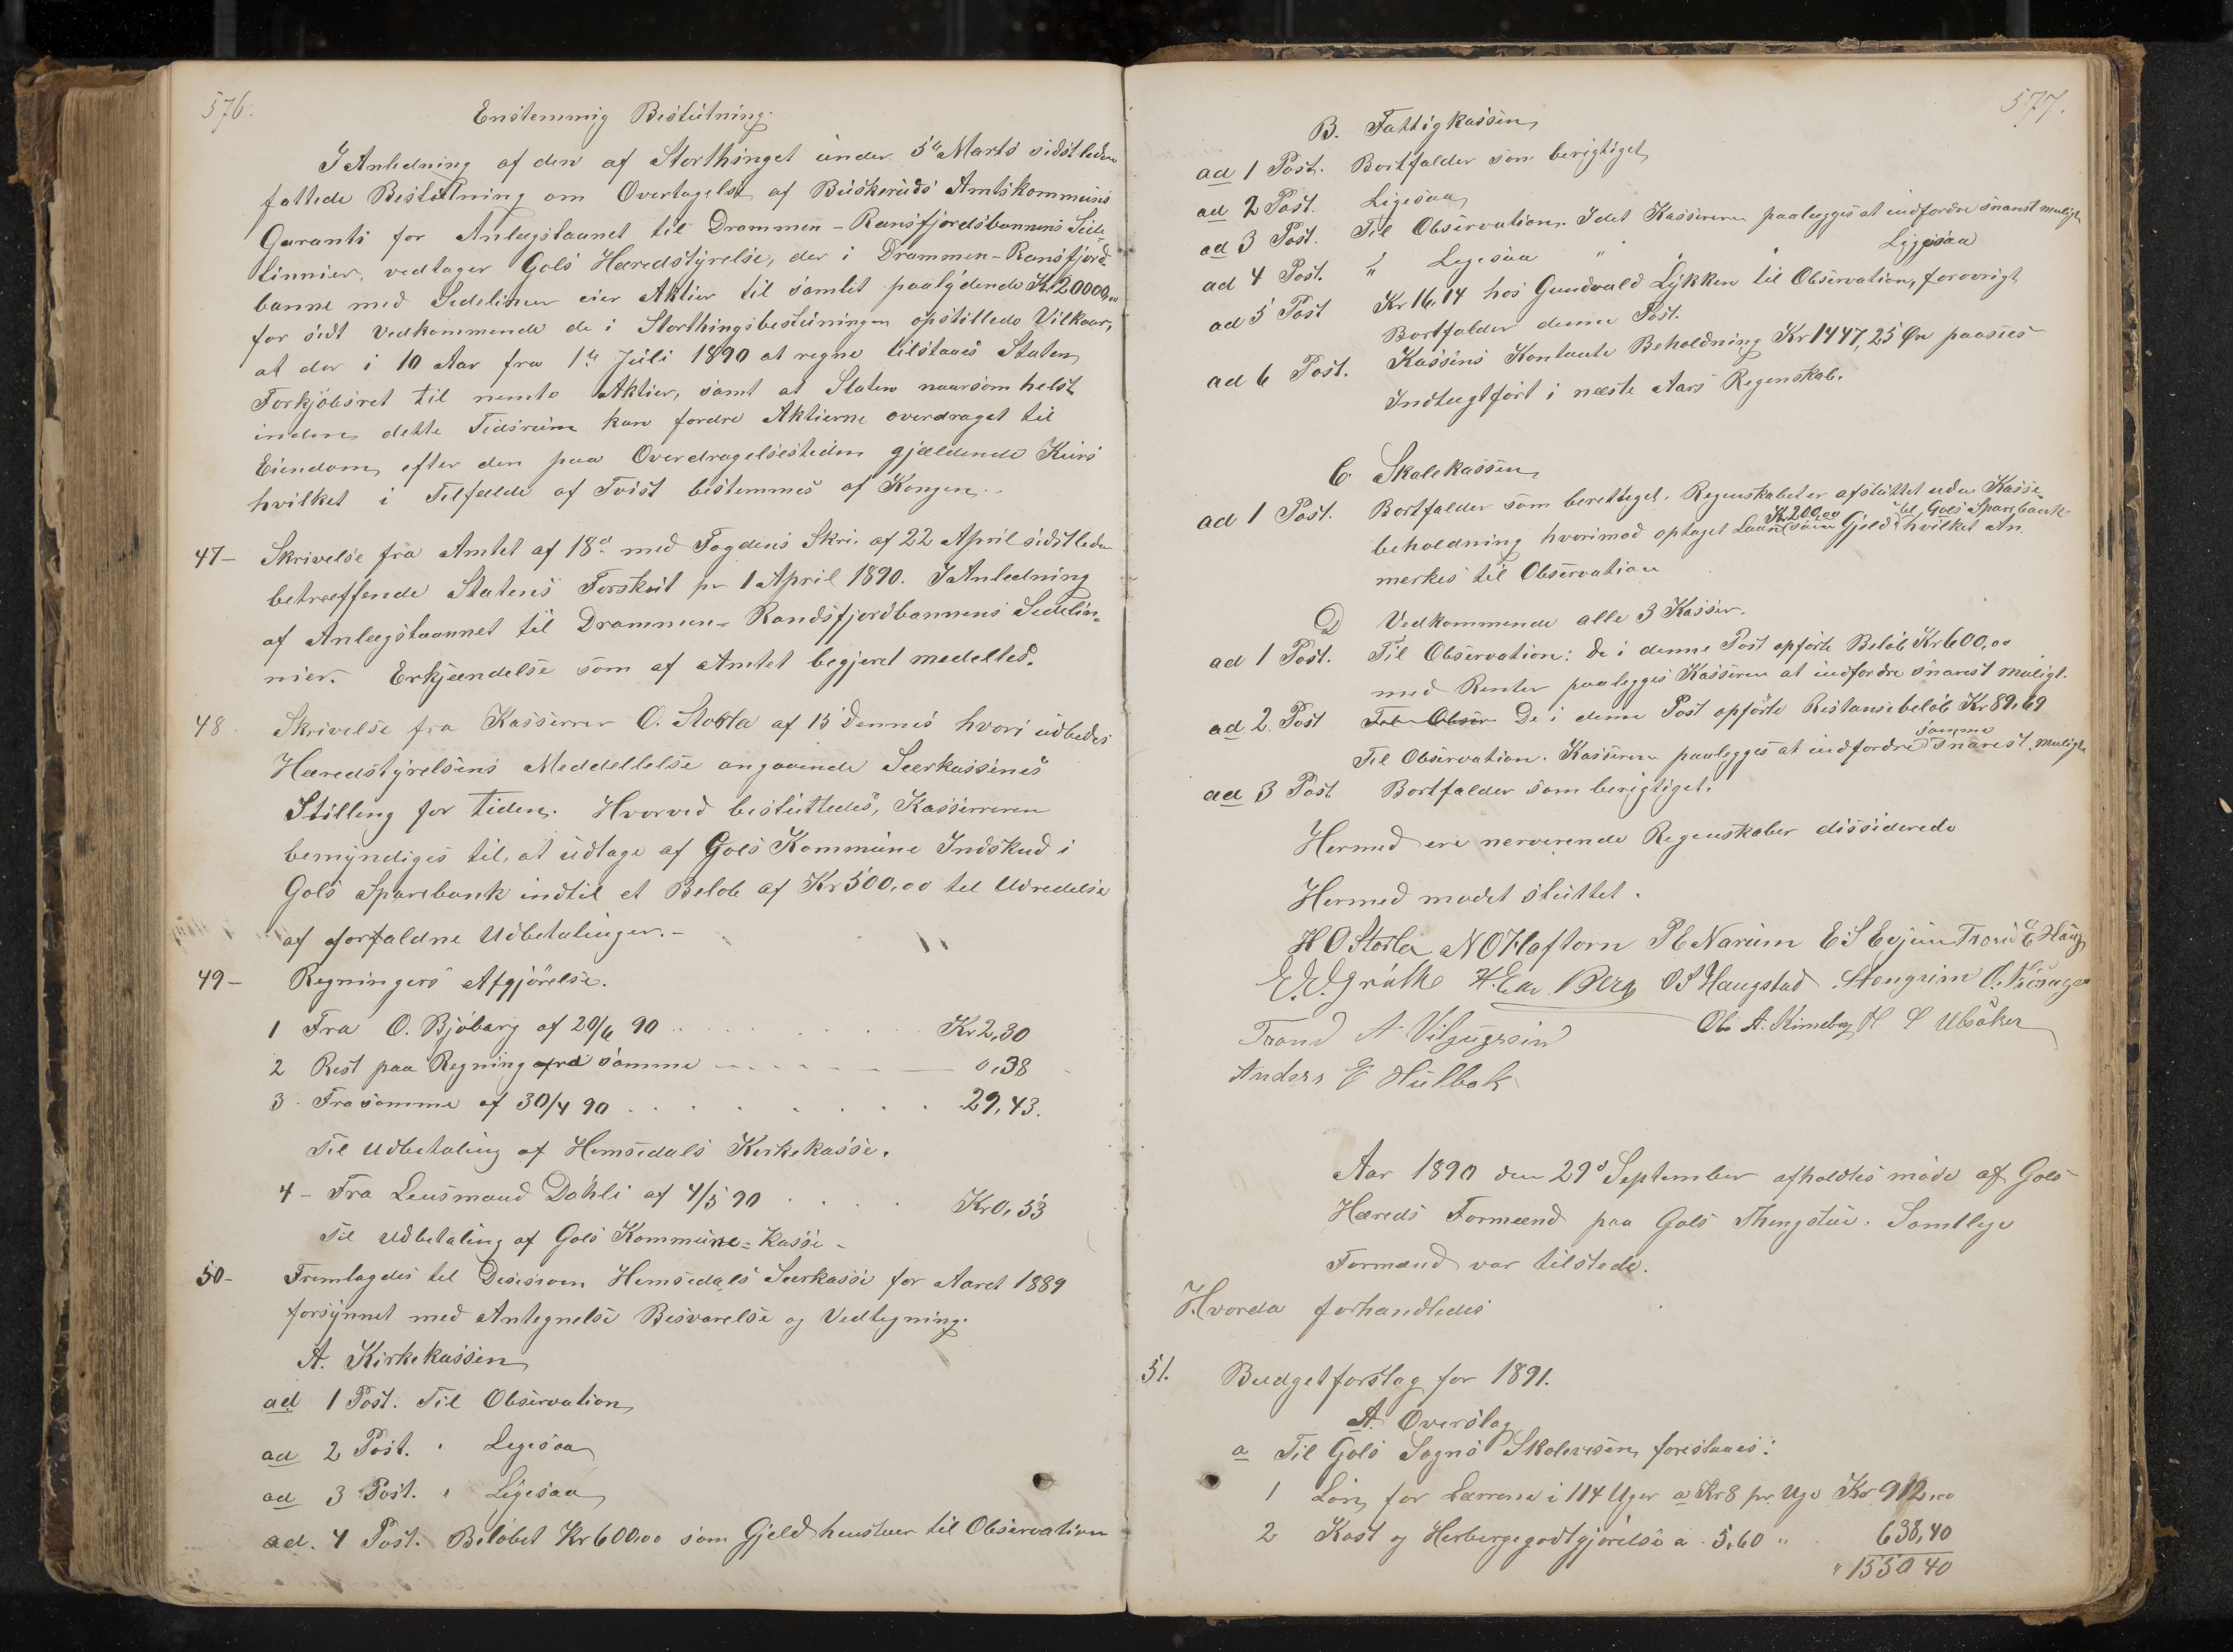 576.
Enstemmig Beslutning.
I Anledning af den af Storthinget under 5te Marts sidstleden
fattede Beslutning om Overtagelse af Buskeruds Amtskommunes
Garanti for Anlægslaanet til Drammen-Ransfjordsbannens Side-
linnier, vedtager Gols Hæredstyrelse, der i Drammen-Ransfjord-
banne med Sidelinier eier Aktier til samlet paalydende Kr 20000,00
for sidt Vedkommende de i Storthingsbesluningen opstillede Vilkaar,
at der i 10 Aar fra 1te Juli 1890 at regne tilstaaes Staten
Forkjøbsret til nemte Aktier, samt at Staten naarsom helst
inden dette Tidsrum kan fordre Aktierne overdraget til
Eiendom efter den paa Overdragelsestiden gjældende Kurs
hvilket i Tilfælde af Tvist bestemmes af Kongen.
47- Skrivelse fra Amtet af 18d med Fogdens Skri. af 22 April sidstleden
betræffende Statens Forskut pr 1 April 1890. I Anledning
af Anlægslaannet til Drammen-Randsfjordbannens Sidelin-
nier. Erkjændelse som af Amtet begjeret medeltes.
48 Skrivelse fra Kasserrer O. Storla af 15 Dennes hvori udbedes
Hæredstyrelsens Meddellelse angaaende Seerkassenes
Stilling for tiden. Hvorved besluttedes, Kasserreren
bemyndiges til, at udtage af Gols Kommune Indskud i
Gols Sparebank indtil et Beløb af Kr 500,00 til Udredelse
af forfaldne Udbetalinger.-
49- Regningers Afgjørelse.
1 Fra O. Bjøbarg af 20/6 90 Kr 2,30
2 Rest paa Regning fra samme 0,38
3 Fra samme af 30/4 90 29,43.
Til Udbetaling af Hemsedals Kirkekasse.
4- Fra Lensmand Dahli af 4/5 90 Kr 0,53
Til Udbetaling af Gols Kommune-Kasse-
50- Fremlagdes til Desision Hemsedals Seerkasse for Aaret 1889
forsynnet med Antegnelse Besvarelse og Vedtegning.
A. Kirkekassen
ad 1 Post. Til Observation
ad 2 Post. " Legesaa
ad 3 Post. " Ligesaa
ad. 4 Post. Beløbet Kr 600,00 som Gjeld henstaar til Observation
577.
B. Fattigkassen
ad 1 Post. Bortfalder som berigtiget
ad 2 Post. Ligesaa
ad 3 Post. Til Observation. Idet Kassereren paalægges at indfordre snarest muligt
ad 4 Post. " Legesaa " " " Ligesaa
ad 5 Post Kr 16,14 hos Gundvald Lykken til Observation, forøvrigt
Bortfalder denne Post.
ad 6 Post. Kassens Kontante Beholdning Kr 1447,25 Øre paasees
Indtægtført i næste Aars Regenskab.
C. Skolekassen
ad 1 Post. Bortfalder som berettiget. Regenskabet er afsluttet uden Kasse
beholdning hvorimod optaget Laan Kr 200,00 som Gjeld til Gols Sparebank hvilket An-
merkes til Observation
D Vedkommende alle 3 Kasser.
ad 1 Post. Til Observation: De i denne Post opførte Beløb Kr 600,00
med Renter paalegges Kasseren at indfordre snarest muligt.
ad 2 Post Til Obser De i denne Post opførte Restansebeløb Kr 89,69
Til Observation. Kasseren paalegges at indfordre samme snarest muligt
ad 3 Post Bortfalder som berigtiget.
Hermed ere nerverende Regenskaber dissiderede
Hermed mødet sluttet.
H O Storla N O Haftorn P E Narum E S Evjen Trond E Haug
E. E. Gråthe H. Ew. Berg O S Haugstad Stengrim O.
Trond N
Ole A. Kinneberg H S Ulsåker
Anders E Hulbak
Aar 1890 den 29d September afholdtes møde af Gols
Hæreds Formænd paa Gols Thingstue. Samtlige
Formænd var tilstede.
Hvorda forhandledes
51. Budgetforslag for 1891.
A. Overslag
a Til Gols Sogns Skolevesen forislaaes:
1 Løn for Lærrene i 114 Uger a Kr 8 pr Uge Kr 912,00
2 Kost og Herbergegodtgjørelse a 5,60 " 638,40
" 1550 40